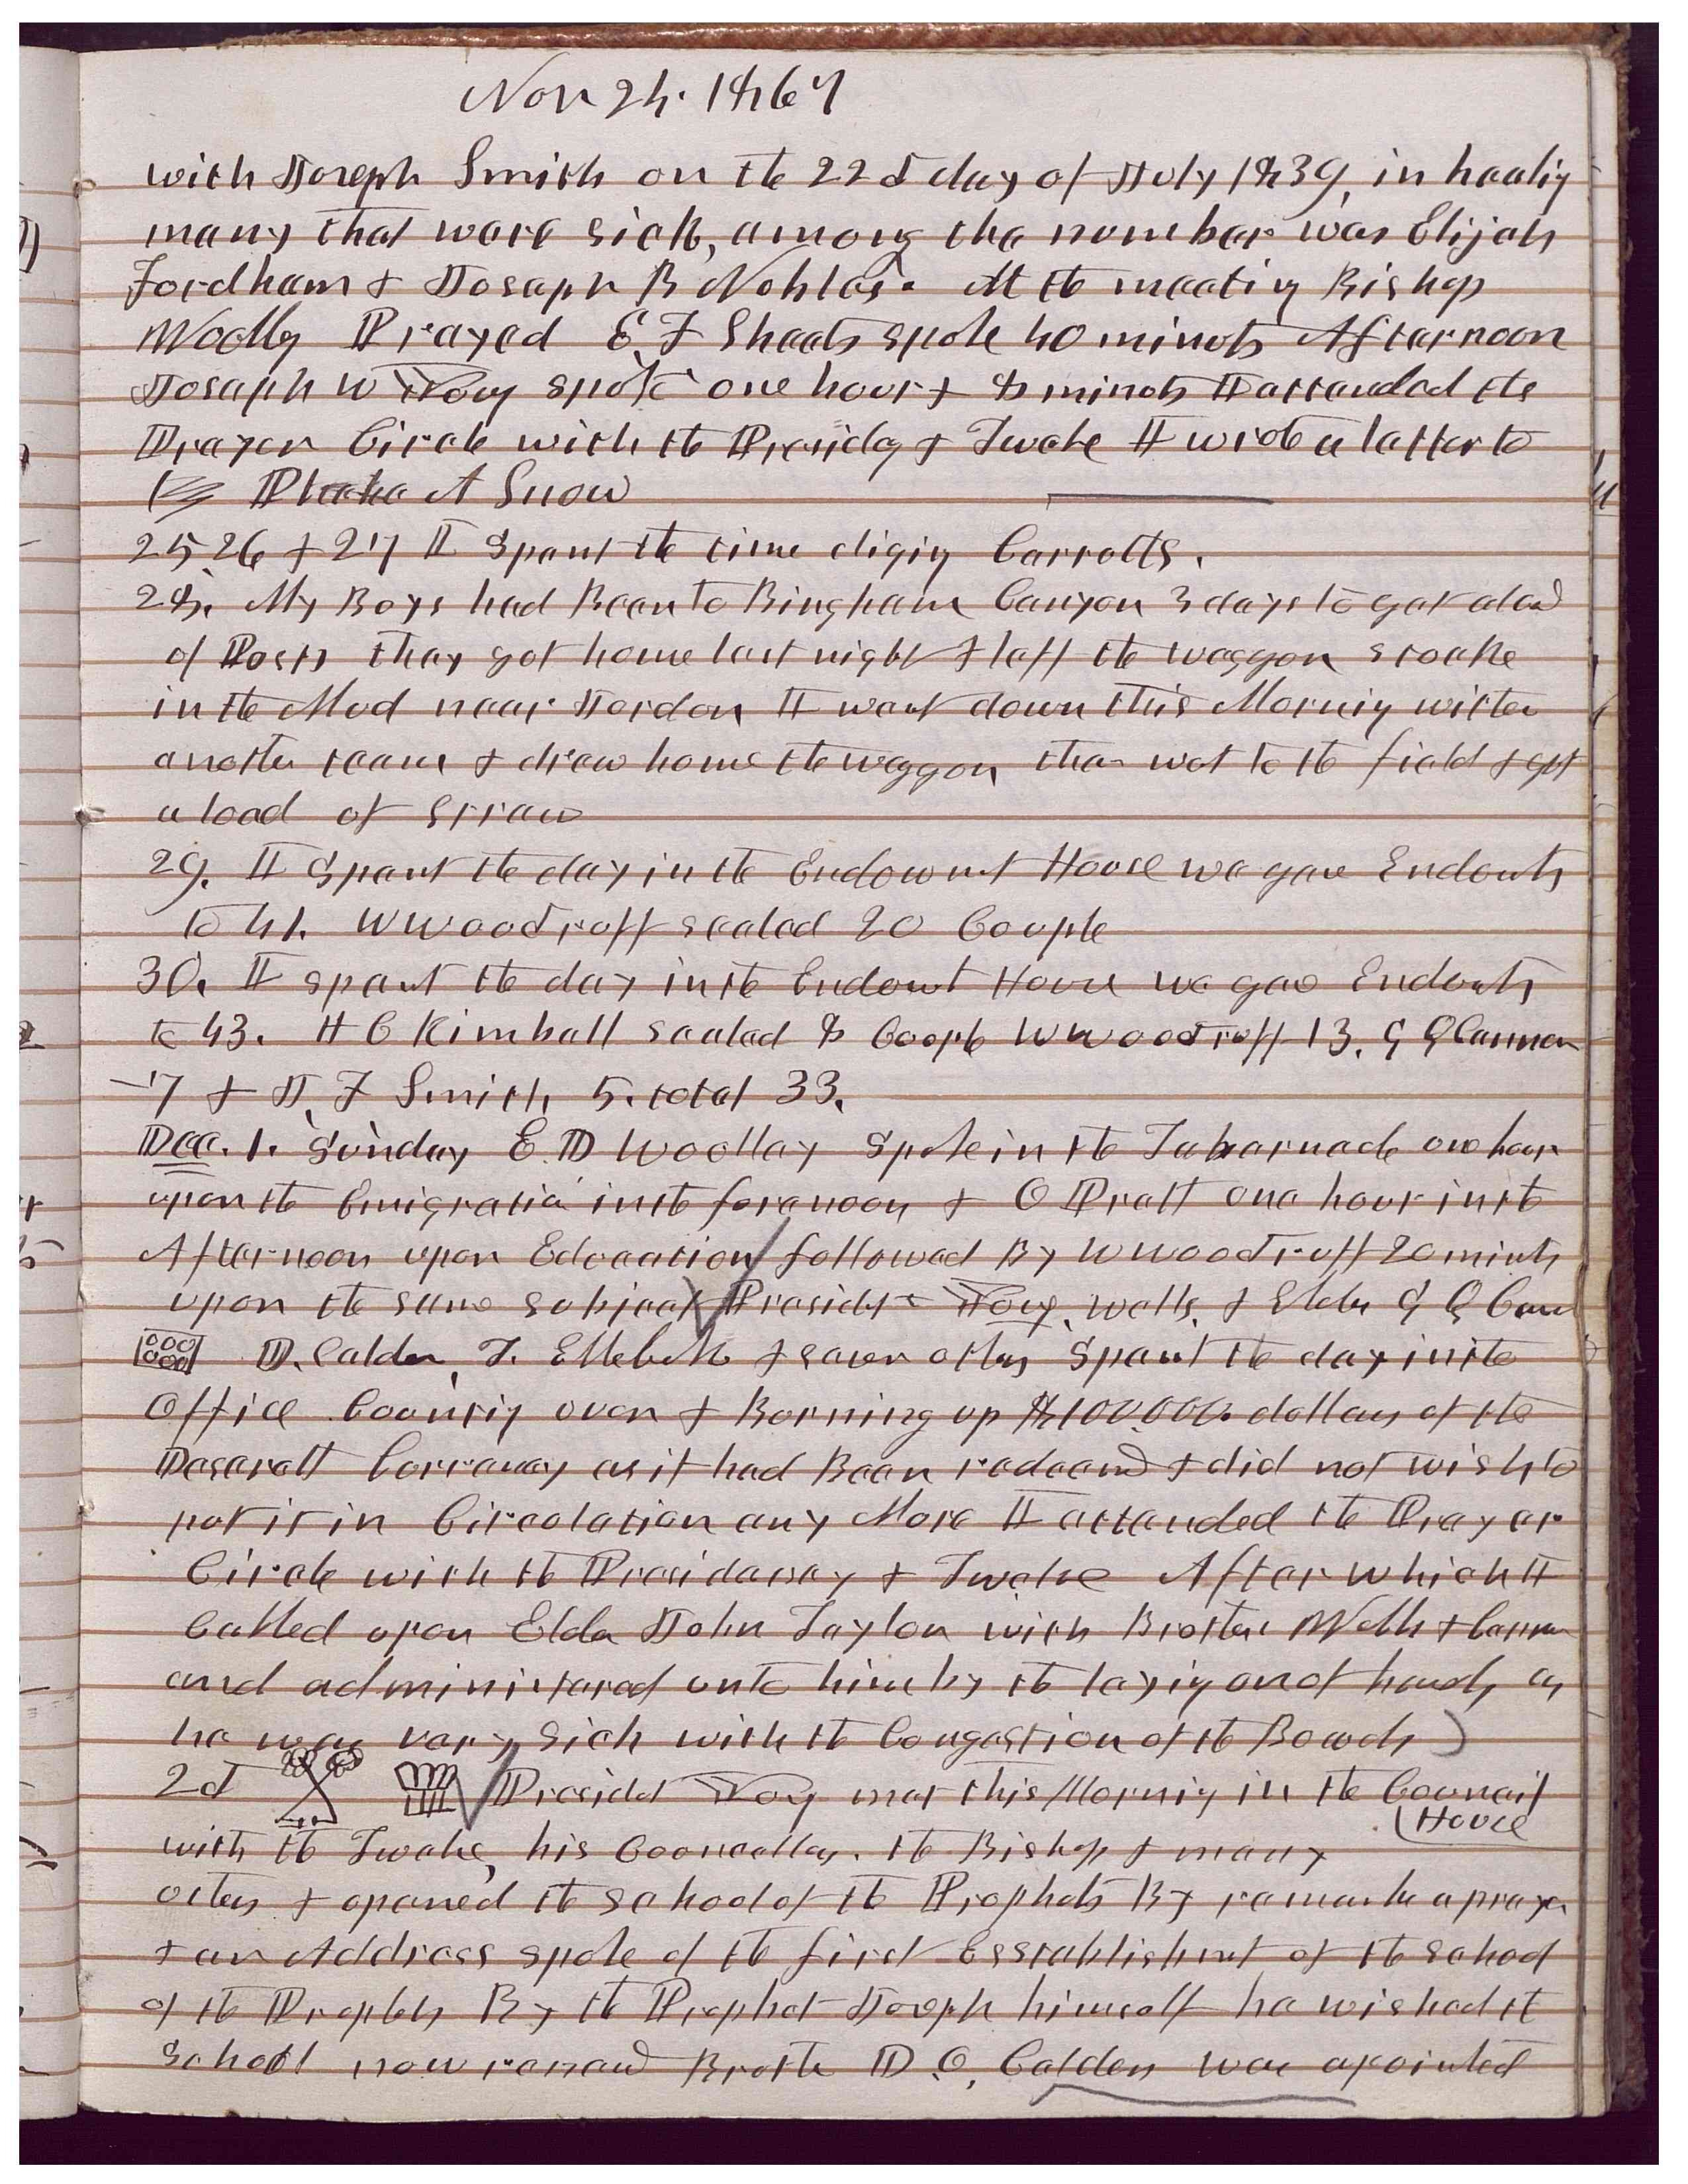 Nov 24. 1867
with Joseph Smith on the 22d day of July 1839, in healig
many that were sick, among the number was Elijah
Fordham & Joseph B Nobles. At the meetig Bishop
Woolley Prayed E, F Sheets spoke 40 minuts Afternoon
Joseph W Young spoke one hour & 8 minuts I attended the
Prayer Circle with the Presidcy & Twelve I wrote a letter to
Phebe A Snow
25 26 & 27 I Spent the time digig Carrotts.
28. My Boys had Been to Bingham Canyon 3 days to get a load
of Posts they got home last night & left the waggon
in the Mud near Jordon I went down this Mornig with
another team & drew home the waggon then wet to the field & got
a load of straw
29. I Spent the day in the Endowmt House we gave Endowts
to 41. W Woodruff sealed 20 Couple
30. I spent the day in the Endowt House we gave Endowts
to 43. H C Kimball sealed 8 Coople W Woodruff 13. G Q Cannon
7 & J, F Smith, 5. total 33.
Dec. 1. Sunday E. D Woolley Spoke in the Tabernacle one hour
upon the Emigration in the forenoon & O Pratt one hour in the
Afternoon upon Education followed By W Woodruff 20 minuts
upon the same subject Presidet Young, Wells, & Elder G Q Cann
D. Calder, T. Ellebeck & seven others Spent the day in the
Office Countig over & Burning up $100,000. dollars of the
Deserett Currency as it had Been redeemd & did not wish to
put it in Circulation any More I attended the Prayer
Circle with the Presidency & Twelve After which I
Called upon Elder John Taylor with Brother Wells & Cannon
and administered unto him by the layig on of hands, as
he was very sick with the Congestion of the Bowels
2d Presidet Young met this Mornig in the Council
House
with the Twelve, his Councellors. the Bishops & many
others & opened the School of the Prophets By remarks a prayer
& an Address spoke of the first Esstablishmt of the school
of the Prophets By the Prophet Joseph himself he wished the
School now renewd Brother D. O, Calder was apointed